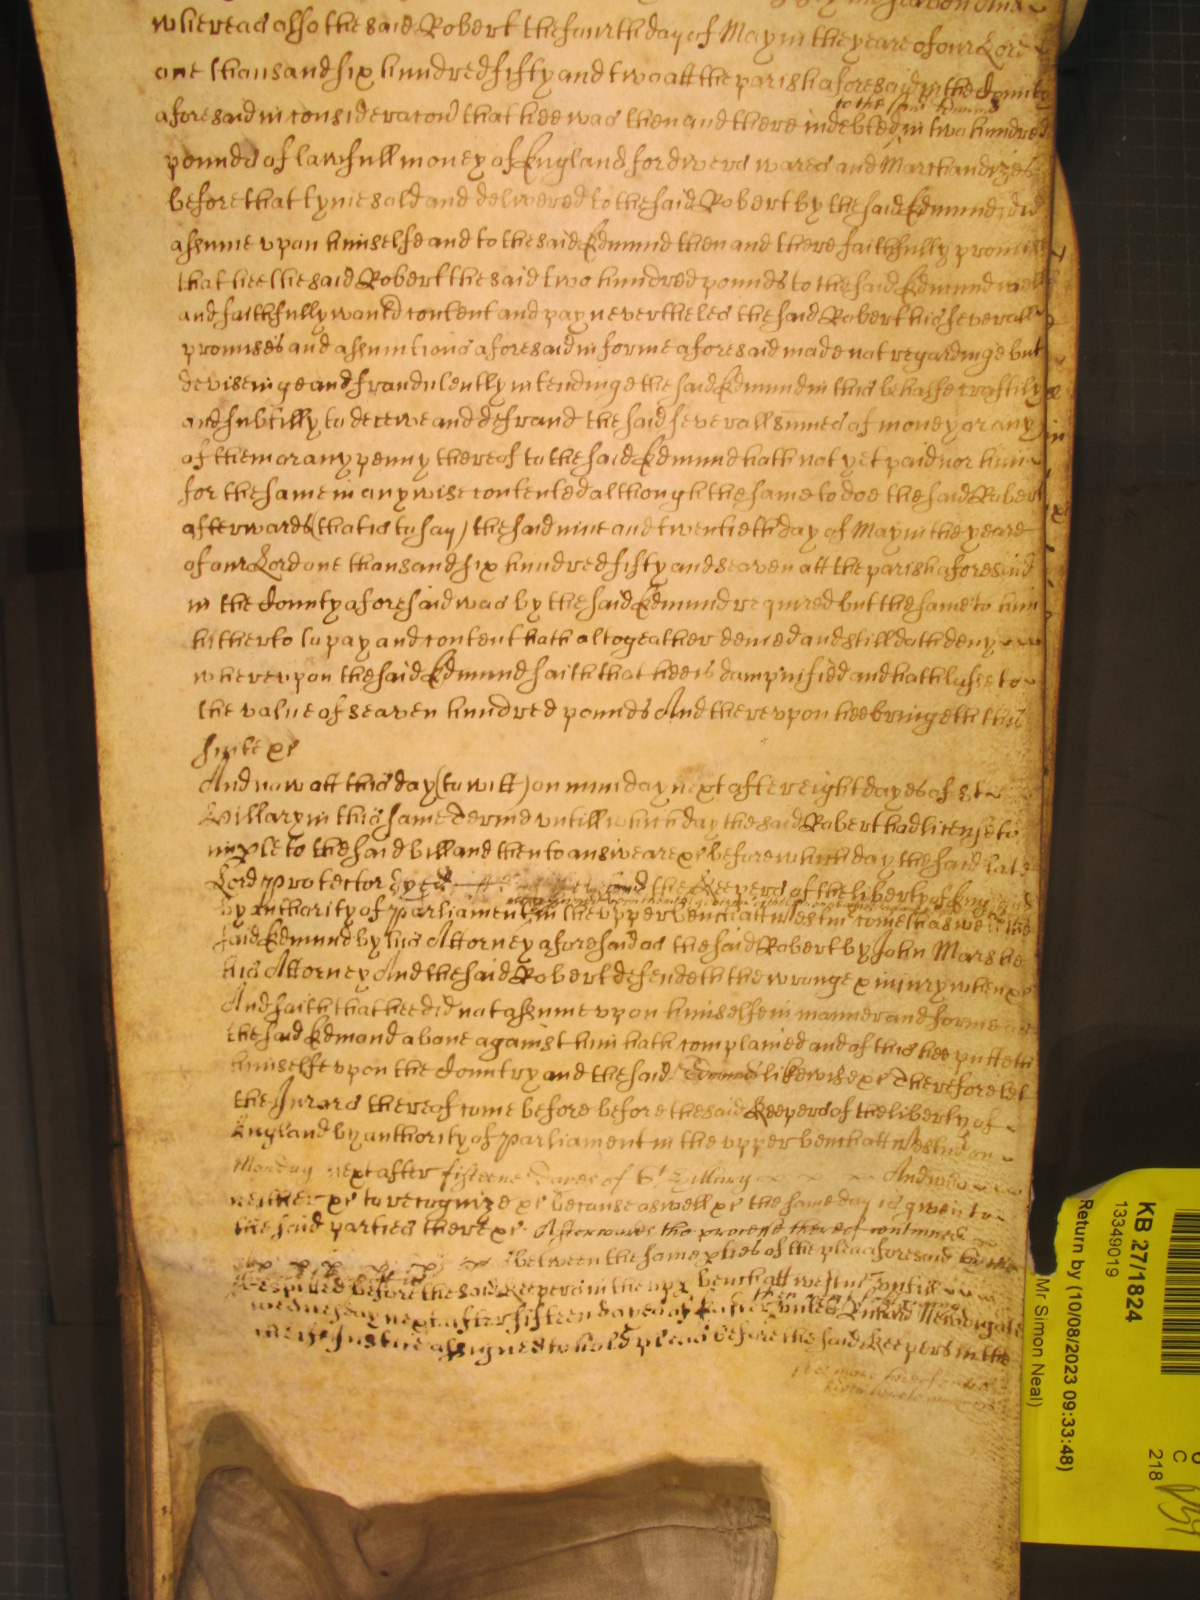 whereas also the said Robert the fourth day of May in the yeare of our Lord
one thousand six hundred fifty and two att the parish aforesaid in the County
to the said Edmund
aforesaid in consideracon that hee was then and there indebted in two hundred
pounds of lawfull money of England for divers wares and Marchandizes
before that tyme sold and delivered to the said Robert by the said Edmund did
assume upon himselfe and to the said Edmund then and there faithfully promise
that hee the said Robert the said two hundred pounds to the said Edmund well
and faithfully would content and pay nevertheles the said Robert his severall
promises and assumtions aforesaid in forme aforesaid made not regardinge but
deviseinge and fraudulently intendinge the said Edmund in this behalfe craftily
and subtilly to deceive and defraud the said severall sumes of money or any
of them or any penny thereof to the said Edmund hath not yet paid nor him
for the same in any wise contented although the same to doe the said Robert
afterwards (that is to say) the said nine and twentieth day of May in the yeare
of our Lord one thousand six hundred fifty and seaven att the parish aforesaid
in the County aforesaid was by the said Edmund required but the same to him
hitherto to pay and content hath altogeather denied and still doth deny
whereupon the said Edmund saith that hee is dampnified and hath losse to
the value of seaven hundred pounds And thereupon hee bringeth this
suite &c
And now att this day (to witt) on munday next after eight dayes of St
Hillary in this same Terme untill which day the said Robert had license to
imple to the said bill and then to answeare &c before which day the said late
Lord Protector the Keepers of the liberty of England
by authority of Parliament in the upper bench att Westm cometh aswell the
said Edmund by his Attorney aforesaid as the said Robert by John Marshe
his Attorney And the said Robert defendeth the wronge & injury when &c
And saith that hee did not assume upon himselfe in manner and forme as
the said Edmund above against him hath complained and of this hee putteth
himselfe upon the Country and the said Edmund likewise &c Therefore let
the Jurars thereof come before before the said Keepers of the liberty of
England by authority of Parliament in the upper bench att Westm on
Monday next after fifteene dayes of St Hillary And who
neither &c to recognize &c because aswell &c the same day is given to
the said parties there &c Afterwards the processe thereof continued
between the same pties of the plea aforesaid
respited before the said Keepers in the upp bench att Westm untill
wednesday next after fifteen dayes of Easter unles Richard Newdigate
Justice assigned to hold pleas before the said Keepers in the
KB 27/1824
13349019
Return by (10/08/2023 09:33:48)
Mr Simon Neal)
C
218